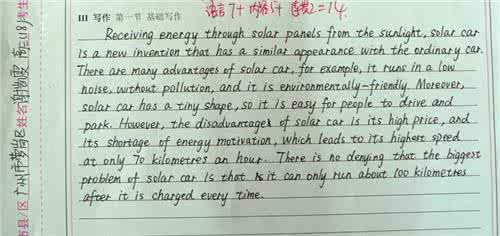 语言7+ 内容5+ 连贯2=14
III 写作 第一节 基础写作
Receiving energy through solar panels from the sunlight, solar car
is a new invention that has a similar appearance with the ordinary car.
There are many advantages of solar car, for example, it runs in a low
noise, without pollution, and it is environmentally-friendly. Moreover,
solar car has a tiny shape, so it is easy for people to drive and
park. However, the disadvantages of solar car is its high price, and
its shortage of energy motivation, which leads to its highest speed
at only 70 kilometres an hour. There is no denying that the biggest
problem of solar car is that it can only run about 100 kilometres
after it is charged every time.
市县/区 广州市
姓名
考生